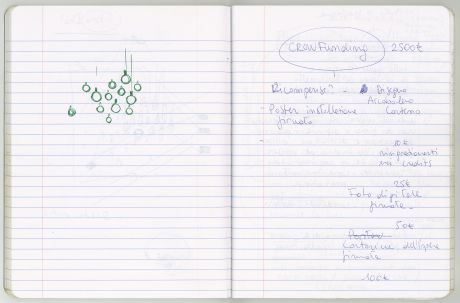 CROWFUNDING 2500€
Ricompense? - Disegno
Acquerello
- Poster installazione Cartaceo
firmato
10€
ringraziamenti
nei credits
25€
Foto digitale
firmata -
50€
Poster
Cartolina dell'opera
firmata
100€